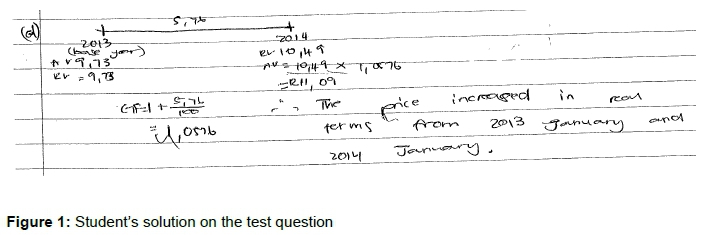 (d)
5,76
2013 2014
(base year) RV 10,49
NV 9,73 NV = 10,49 × 1,0576
RV = 9,73 = R11,09
CF=1 + 5,76/100 ∴ The price increased in real
= 1,0576 terms from 2013 January and
2014 January.
Figure 1: Student's solution on the test question